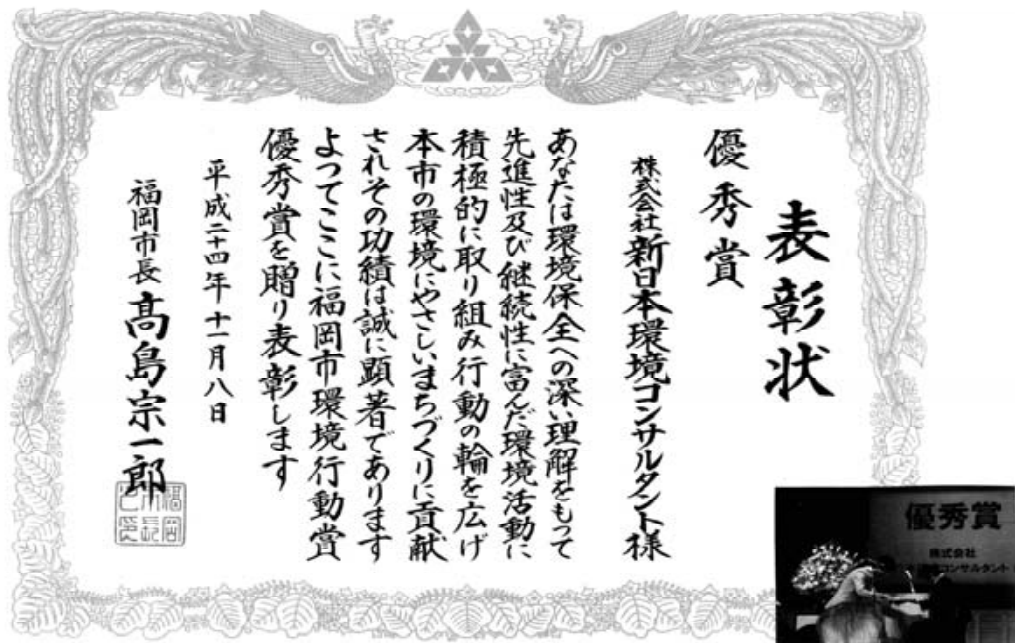 表彰状
優秀賞
株式会社新日本環境コンサルタント様
あなたは環境保全への深い理解をもって
先進性及び継続性に富んだ環境活動に
積極的に取り組み行動の輪を広げ
本市の環境にやさしいまちづくりに貢献
されその功績は誠に顕著であります
よってここに福岡市環境行動賞
優秀賞を贈り表彰します
平成二十四年十一月八日
福岡市長 髙島宗一郎
福岡
市長
之印
優秀賞
株式会社
環境コンサルタント